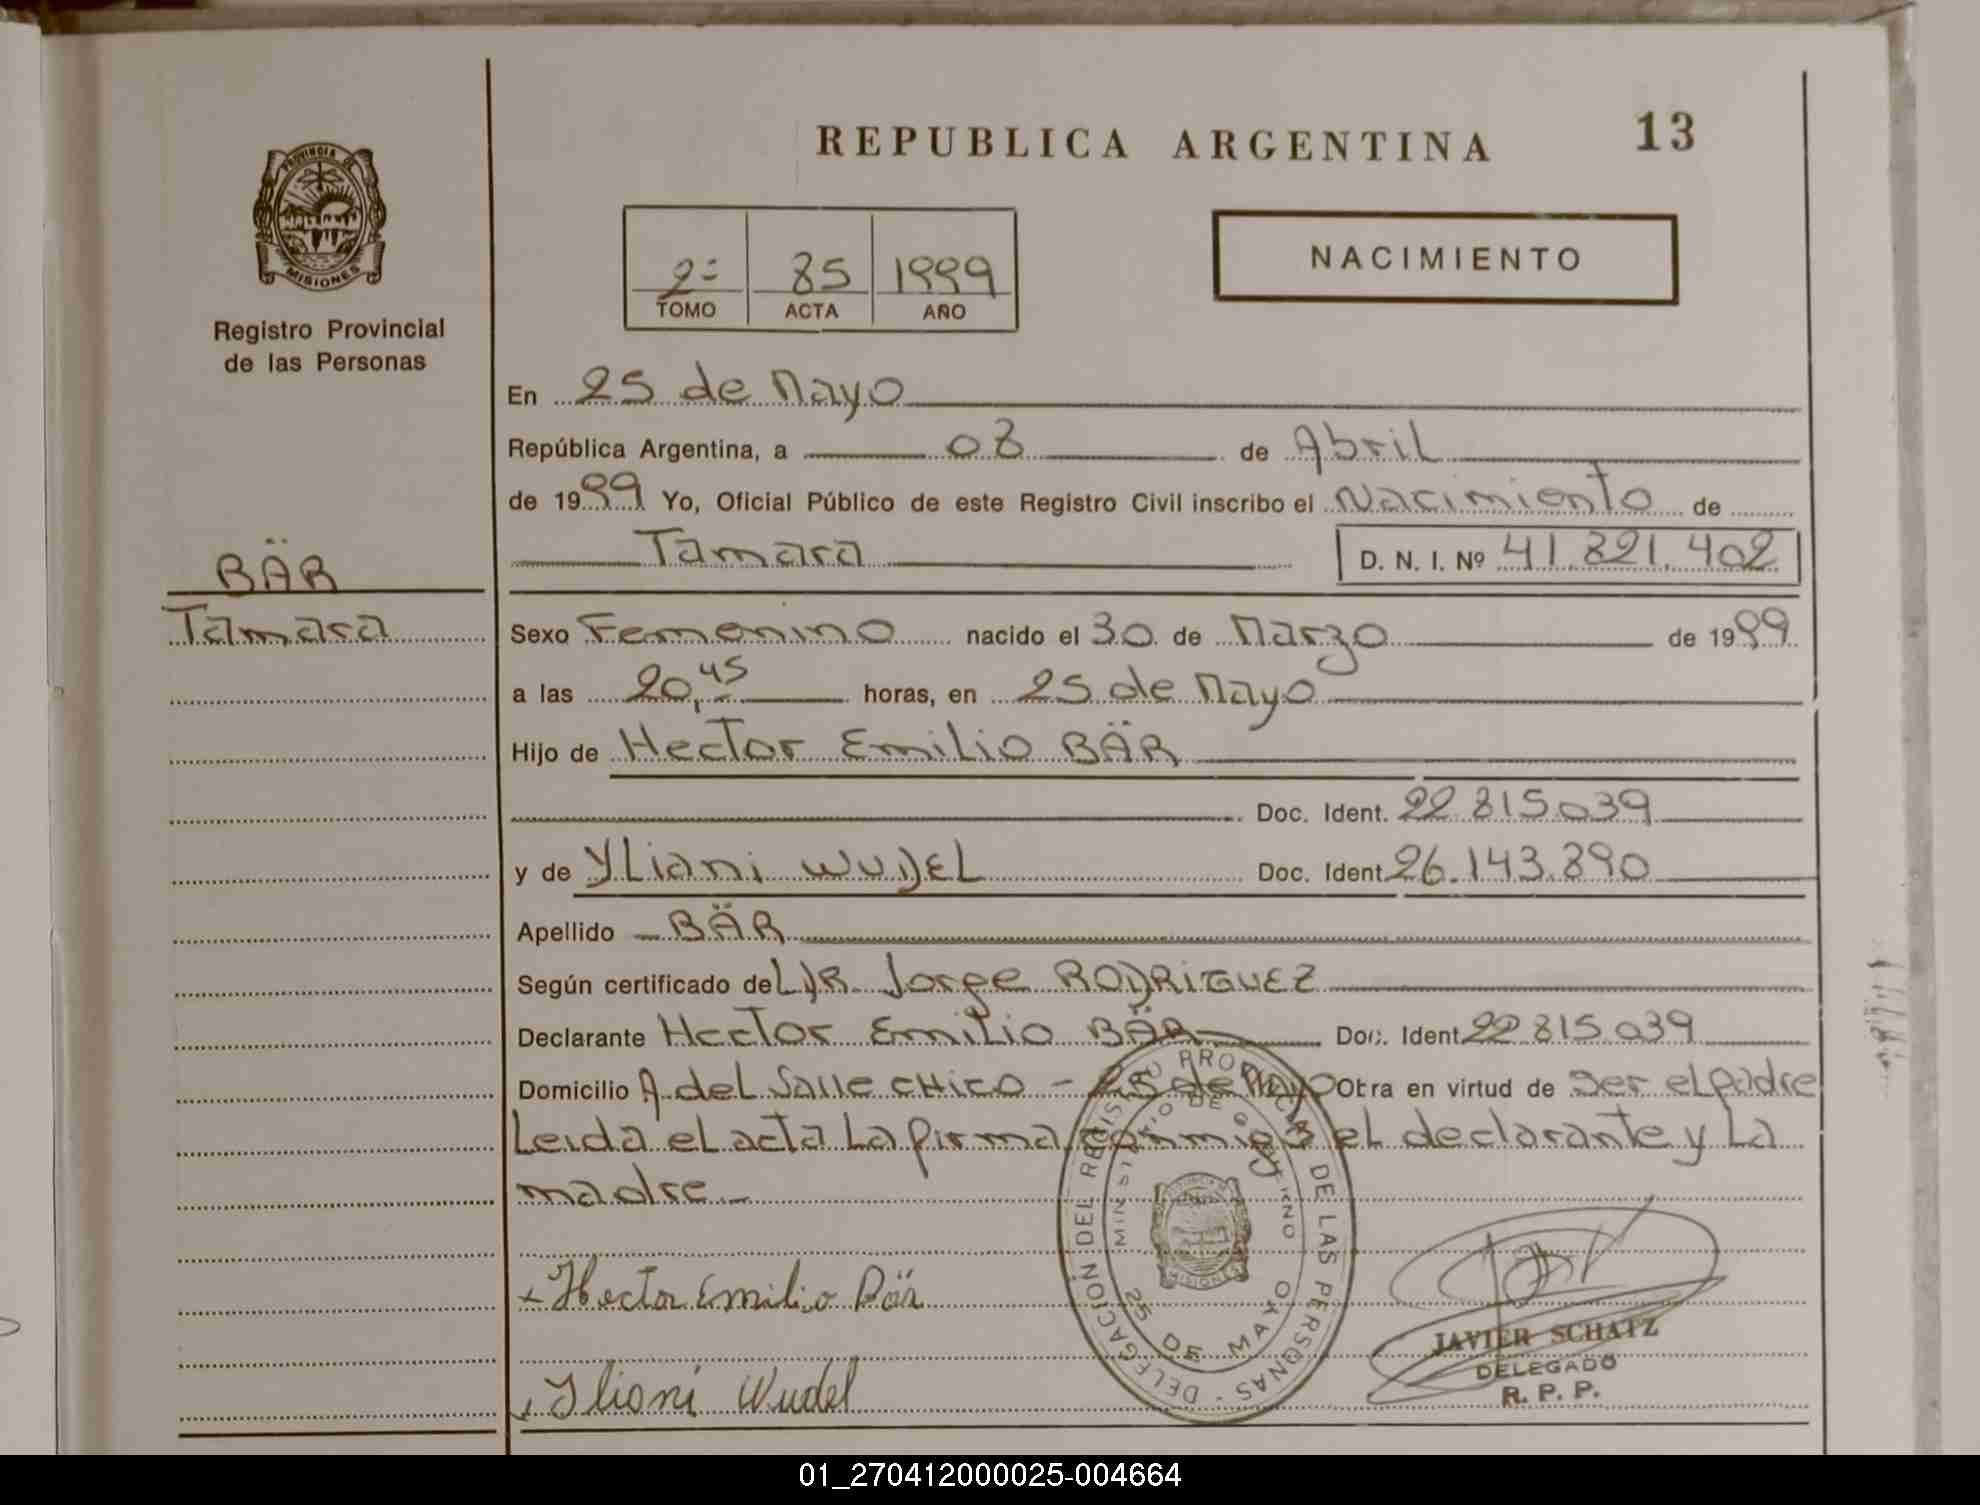 REPUBLICA ARGENTINA
13
PROVINCIA DE
MISIONES
Registro Provincial
de las Personas
2º 85 1999
TOMO ACTA AÑO
NACIMIENTO
En 25 de Mayo
República Argentina, a 08 de Abril
de 1999 Yo, Oficial Público de este Registro Civil inscribo el Nacimiento de
Tamara D. N. I. Nº 41.821.402
BÄR
Tamara
Sexo Femenino nacido el 30 de Marzo de 1999
a las 20,45 horas, en 25 de Mayo
Hijo de Hector Emilio BÄR
Doc. Ident. 22.815.039
y de Yliani WUDEL Doc. Ident. 26.143.890
Apellido BÄR
Según certificado de Jorge RODRIGUEZ
Declarante Hector Emilio BÄR Doc. Ident. 22.815.039
Domicilio A. del Valle CHICO - 25 de Mayo Otra en virtud de Ser el padre
Leida el acta La firma conmigo el declarante y La
madre
DELEGACIÓN DEL REGISTRO PROVINCIAL DE LAS PERSONAS
MINISTERIO DE GOBIERNO
MISIONES
25 DE MAYO
Hector Emilio Bär
Yliani Wudel
JAVIER SCHATZ
DELEGADO
R. P. P.
01_270412000025-004664